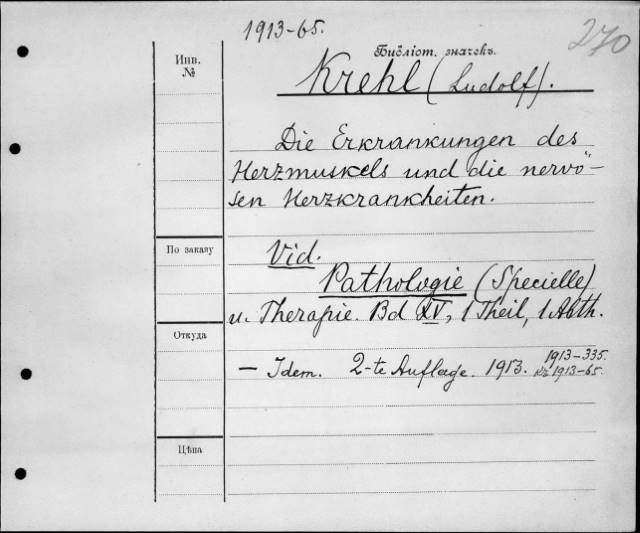 1913-65.
270
Библіот. значекъ.
Инв.
№
Krehl (Ludolf).
Die Erkrankungen des
Herzmuskels und die nervö-
sen Herzkrankheiten.
По заказу
Vid.
Pathologie (Specielle)
u. Therapie. Bd XV, 1 Theil, 1 Abth.
Откуда
1913-335.
— Idem. 2-te Auflage. 1913. 1913-65.
Цѣна